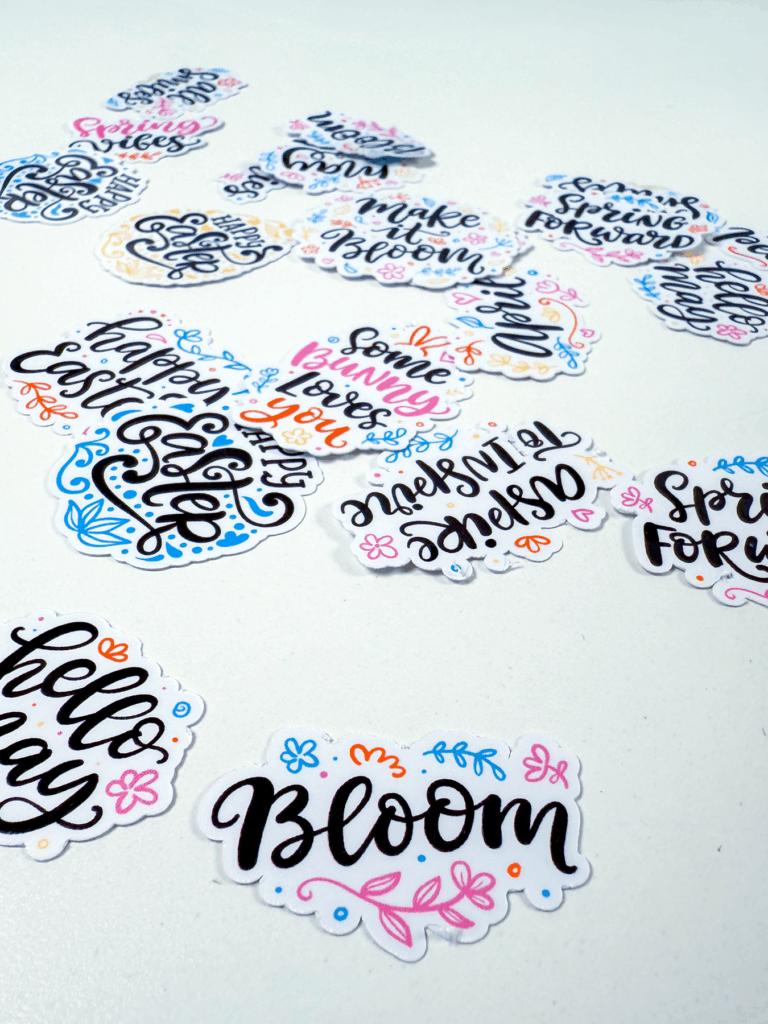 Spring
Vibes
HAPPY
Easter
Bloom
HAPPY
Easter
Make
it
Bloom
Spring
Forward
hello
May
happy
Easte
Some
Bunny
Loves
You
HAPPY
Easter
Aspire
To Inspire
Spri
Forw
hello
may
Bloom